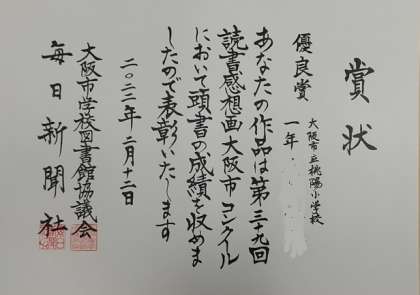 賞状
優良賞
大阪市立桃陽小学校
一年
あなたの作品は第三十九回
読書感想画大阪市コンクール
において頭書の成績を収めま
したので表彰いたします
二〇二二年二月十二日
大阪市学校図書館協議会
毎日新聞社